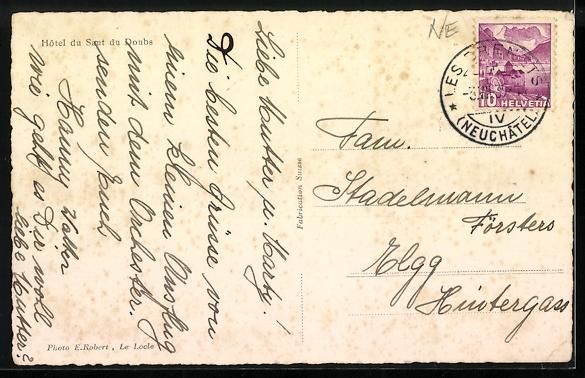 Hôtel du Saut du Doubs
Liebe Mutter u. Marty!
Die besten Grüsse von
einem kleinen Ausflug
mit dem Orchester.
senden Euch
Hanny Walter
wie geht's Dir wohl
liebe Mutter?
Photo E.Robert , Le Locle
Fabrication Suisse
NE
LES BRENETS
IV
(NEUCHÂTEL)
10 HELVETIA
Fam.
Stadelmann
Försters
Elgg
Hintergass